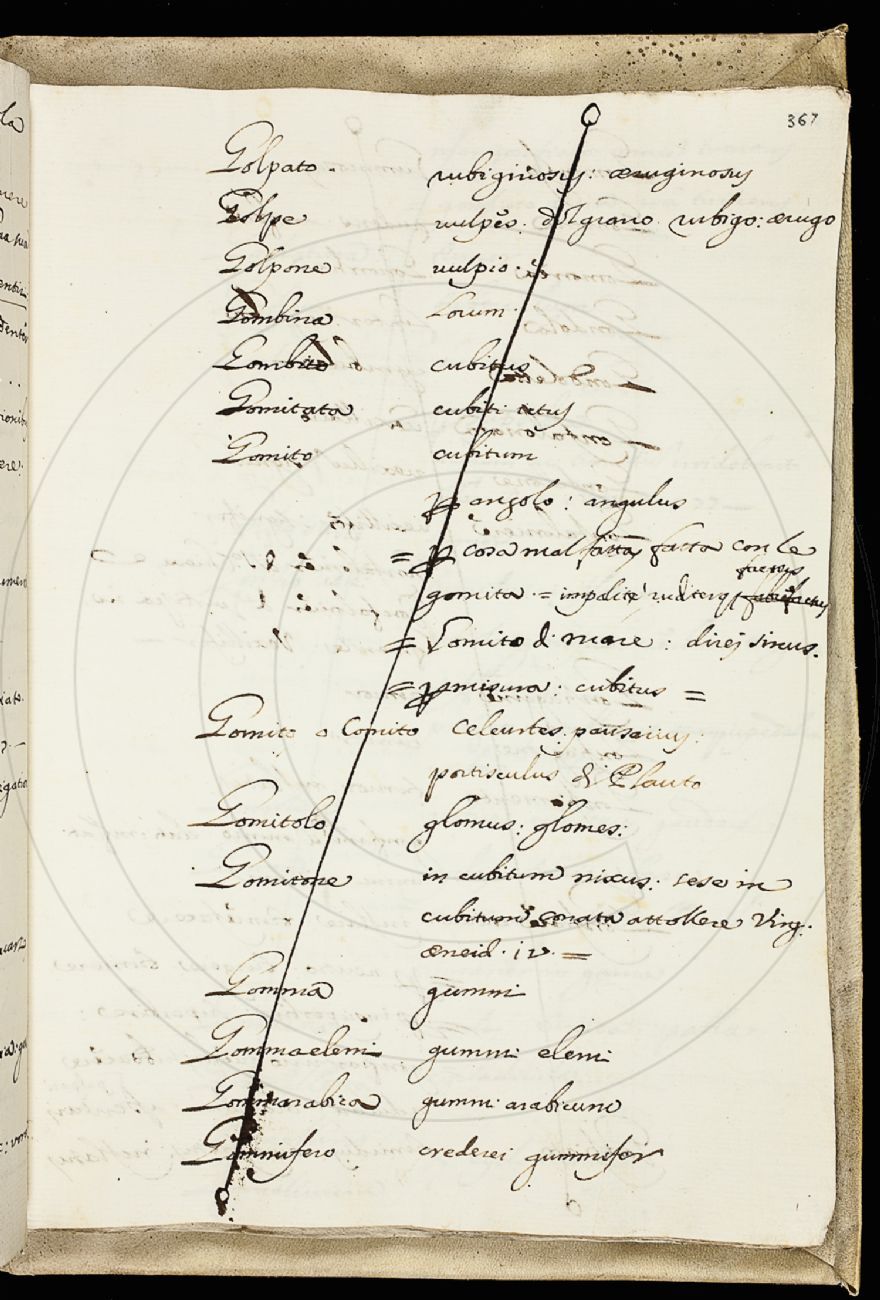 367
Golpato. rubiginosus: æruginosus
Golpe vulpes. del grano rubigo: ærugo
Golpone vulpio:
Gombina Lorum.
Gombito cubitus
Gomitata cubiti ictus
Gomito cubitum
p angolo: angulus
= p cosa mal fatta, fatta con le
factus
gomita. = impolitè, ruditerq;
= Gomito di mare: direi sinus.
= p misura: cubitus =
Gomito o Comito celeustes. pausarius:
portisculus di Plauto
Gomitolo glomus: glomes:
Gomitone in cubitum nixus: sese in
cubitum conata attollere Virg.
æneid. iv. =
Gomma gummi
Gomma elemi gummi elemi
Gommarabica gummi arabicum
Gommifero crederei gummifer